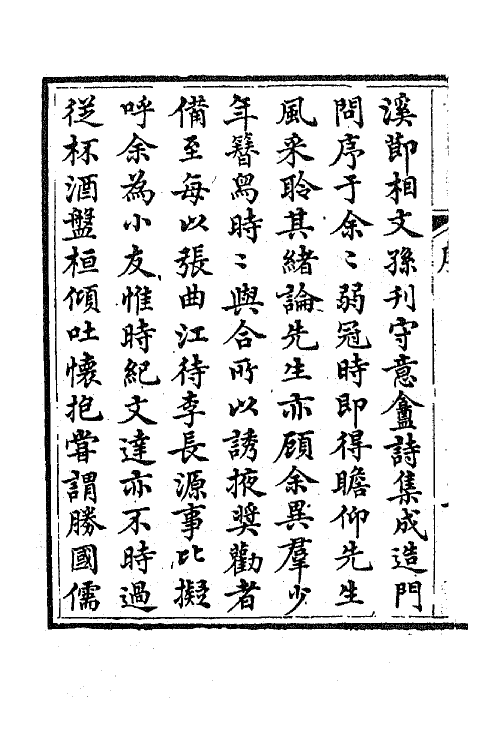 溪節相文孫刊守意龕詩集成造門
問序于余〻弱冠時即得瞻仰先生
風采聆其緒論先生亦顧余異羣少
年簪舄時〻與合所以誘掖奬勸者
備至每以張曲江待李長源事比擬
呼余為小友惟時紀文達亦不時過
從杯酒盤桓傾吐懷抱甞謂勝國儒